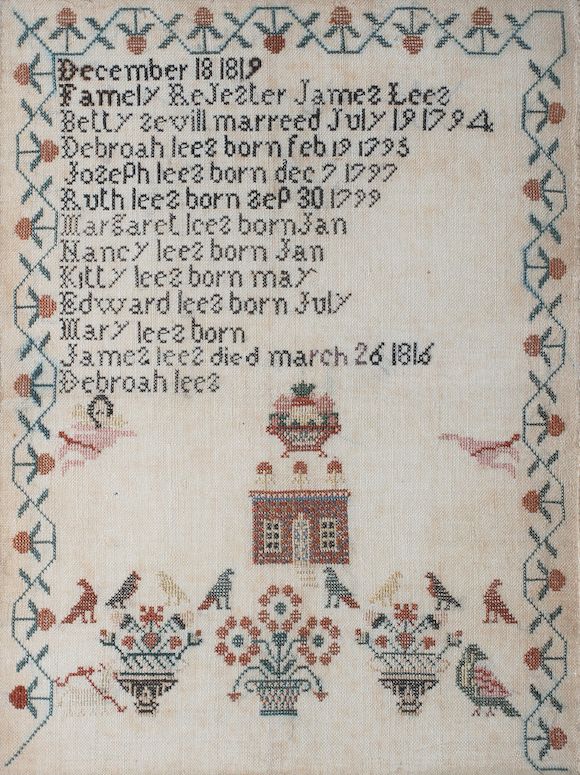 December 18 1819
Famely ReJester James Lees
Betty sewill marreed July 19 1794
Debroah lees born feb 19 1795
Joseph lees born dec 7 1797
Ruth lees born sep 30 1799
Margaret lees born Jan
Nancy lees born Jan
Kitty lees born may
Edward lees born July
Mary lees born
James lees died march 26 1816
Debroah lees